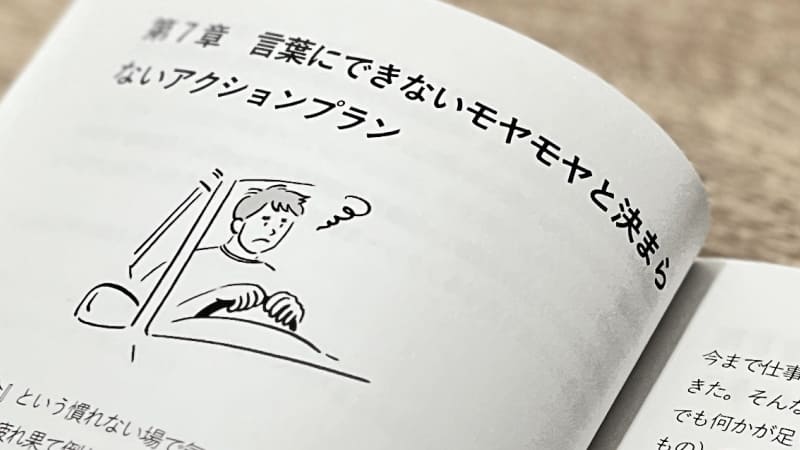 第7章 言葉にできないモヤモヤと決まら
ないアクションプラン
』という慣れない場で
疲れ果て倒
今まで仕事
きた。そんな
でも何かが足
もの）